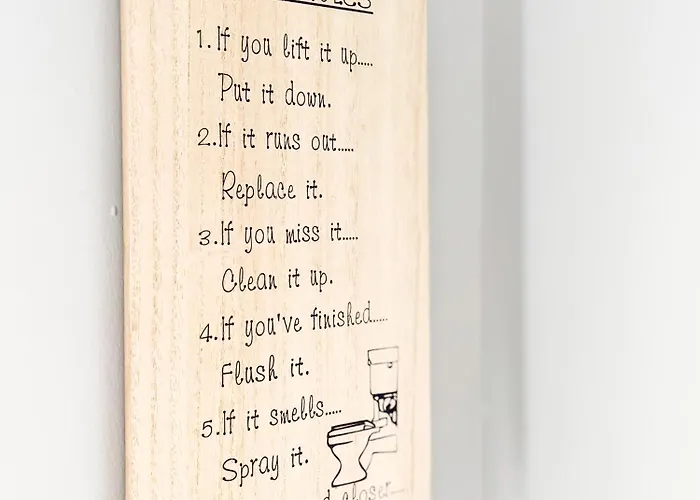 1. If you lift it up.....
Put it down.
2. If it runs out.....
Replace it.
3. If you miss it.....
Clean it up.
4. If you've finished.....
Flush it.
5. If it smells.....
Spray it.
closer